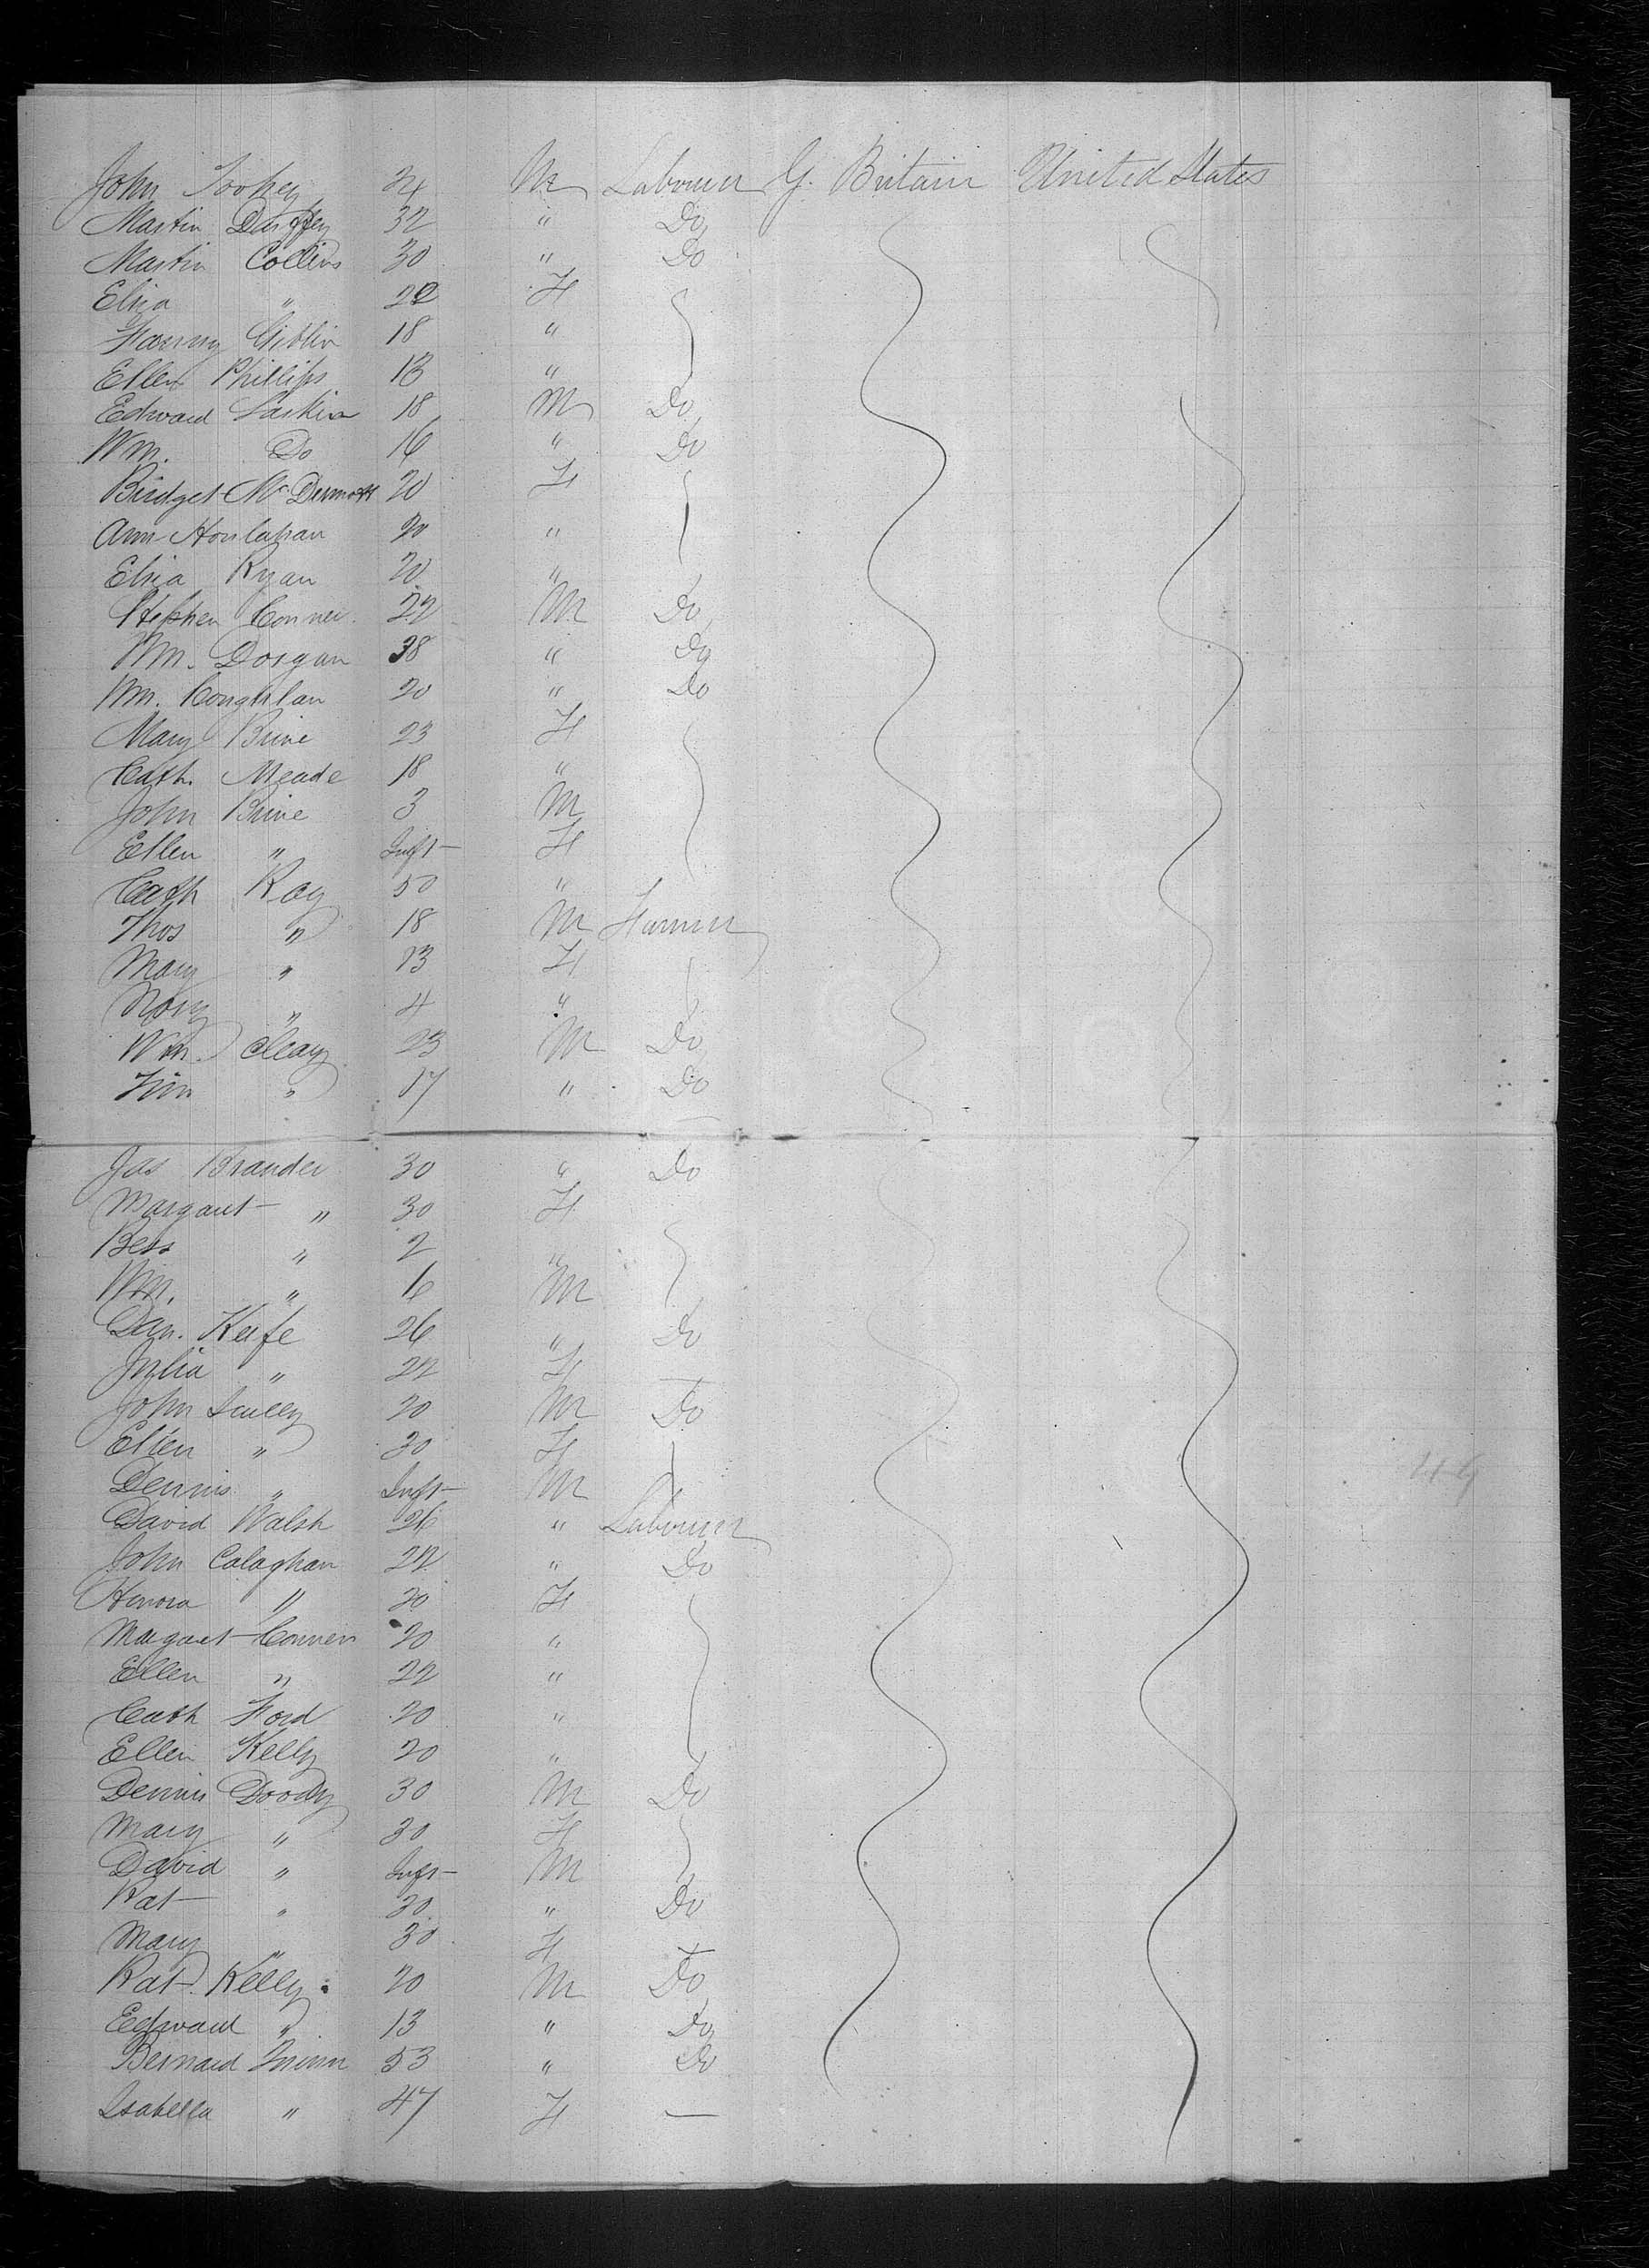 John Toohey 24 M Labourer G. Britain United States
Martin Duffey 32 " Do
Martin Collins 30 " Do
Eliza " 22 F
Fanny Giblin 18 "
Ellen Phillips 13 "
Edward Larkin 18 M Do
Wm. Do 16 " Do
Bridget McDermott 20 F
Ann Houlahan 20 "
Eliza Ryan 20 "
Stephen Conner 22 M Do
Wm. Dorgan 38 " Do
Wm. Coughlan 20 " Do
Mary Brine 23 F
Cath. Meade 18 "
John Brine 3 M
Ellen " Inft F
Cath Roy 50 "
Thos " 18 M Farmer
Mary " 13 F
Nory " 4 "
Wm. Cleary 23 M Do
Tim " 17 " Do
Jas Brander 30 " Do
Margaret " 30 F
Bess " 2 "
Wm. " 6 M
Dan. Keefe 26 " Do
Julia " 22 F
John Scully 20 M Do
Ellen " 30 F
Dennis " Inft M
David Walsh 26 " Labourer
John Calaghan 22 " Do
Honora " 20 F
Margaret Conners 20 "
Ellen " 22 "
Cath Ford 20 "
Ellen Kelly 20 "
Dennis Doody 30 M Do
Mary " 30 F
David " Inft M
Pat " 30 " Do
Mary " 30 F
Pat Kelly 20 M Do
Edward " 13 " Do
Bernard 53 " Do
Isabella " 47 F —